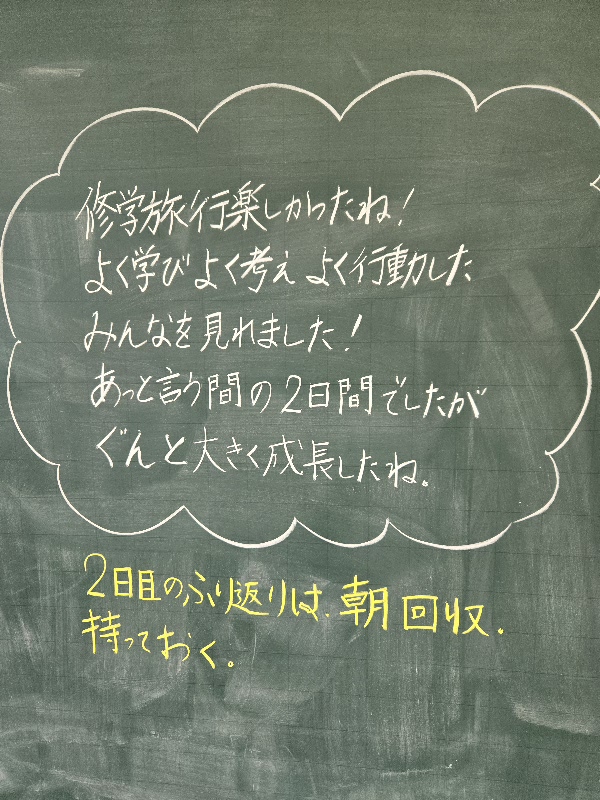 修学旅行楽しかったね！
よく学びよく考えよく行動した
みんなを見れました！
あっと言う間の2日間でしたが
ぐんと大きく成長したね。
2日目のふり返りは、朝回収.
持っておく。